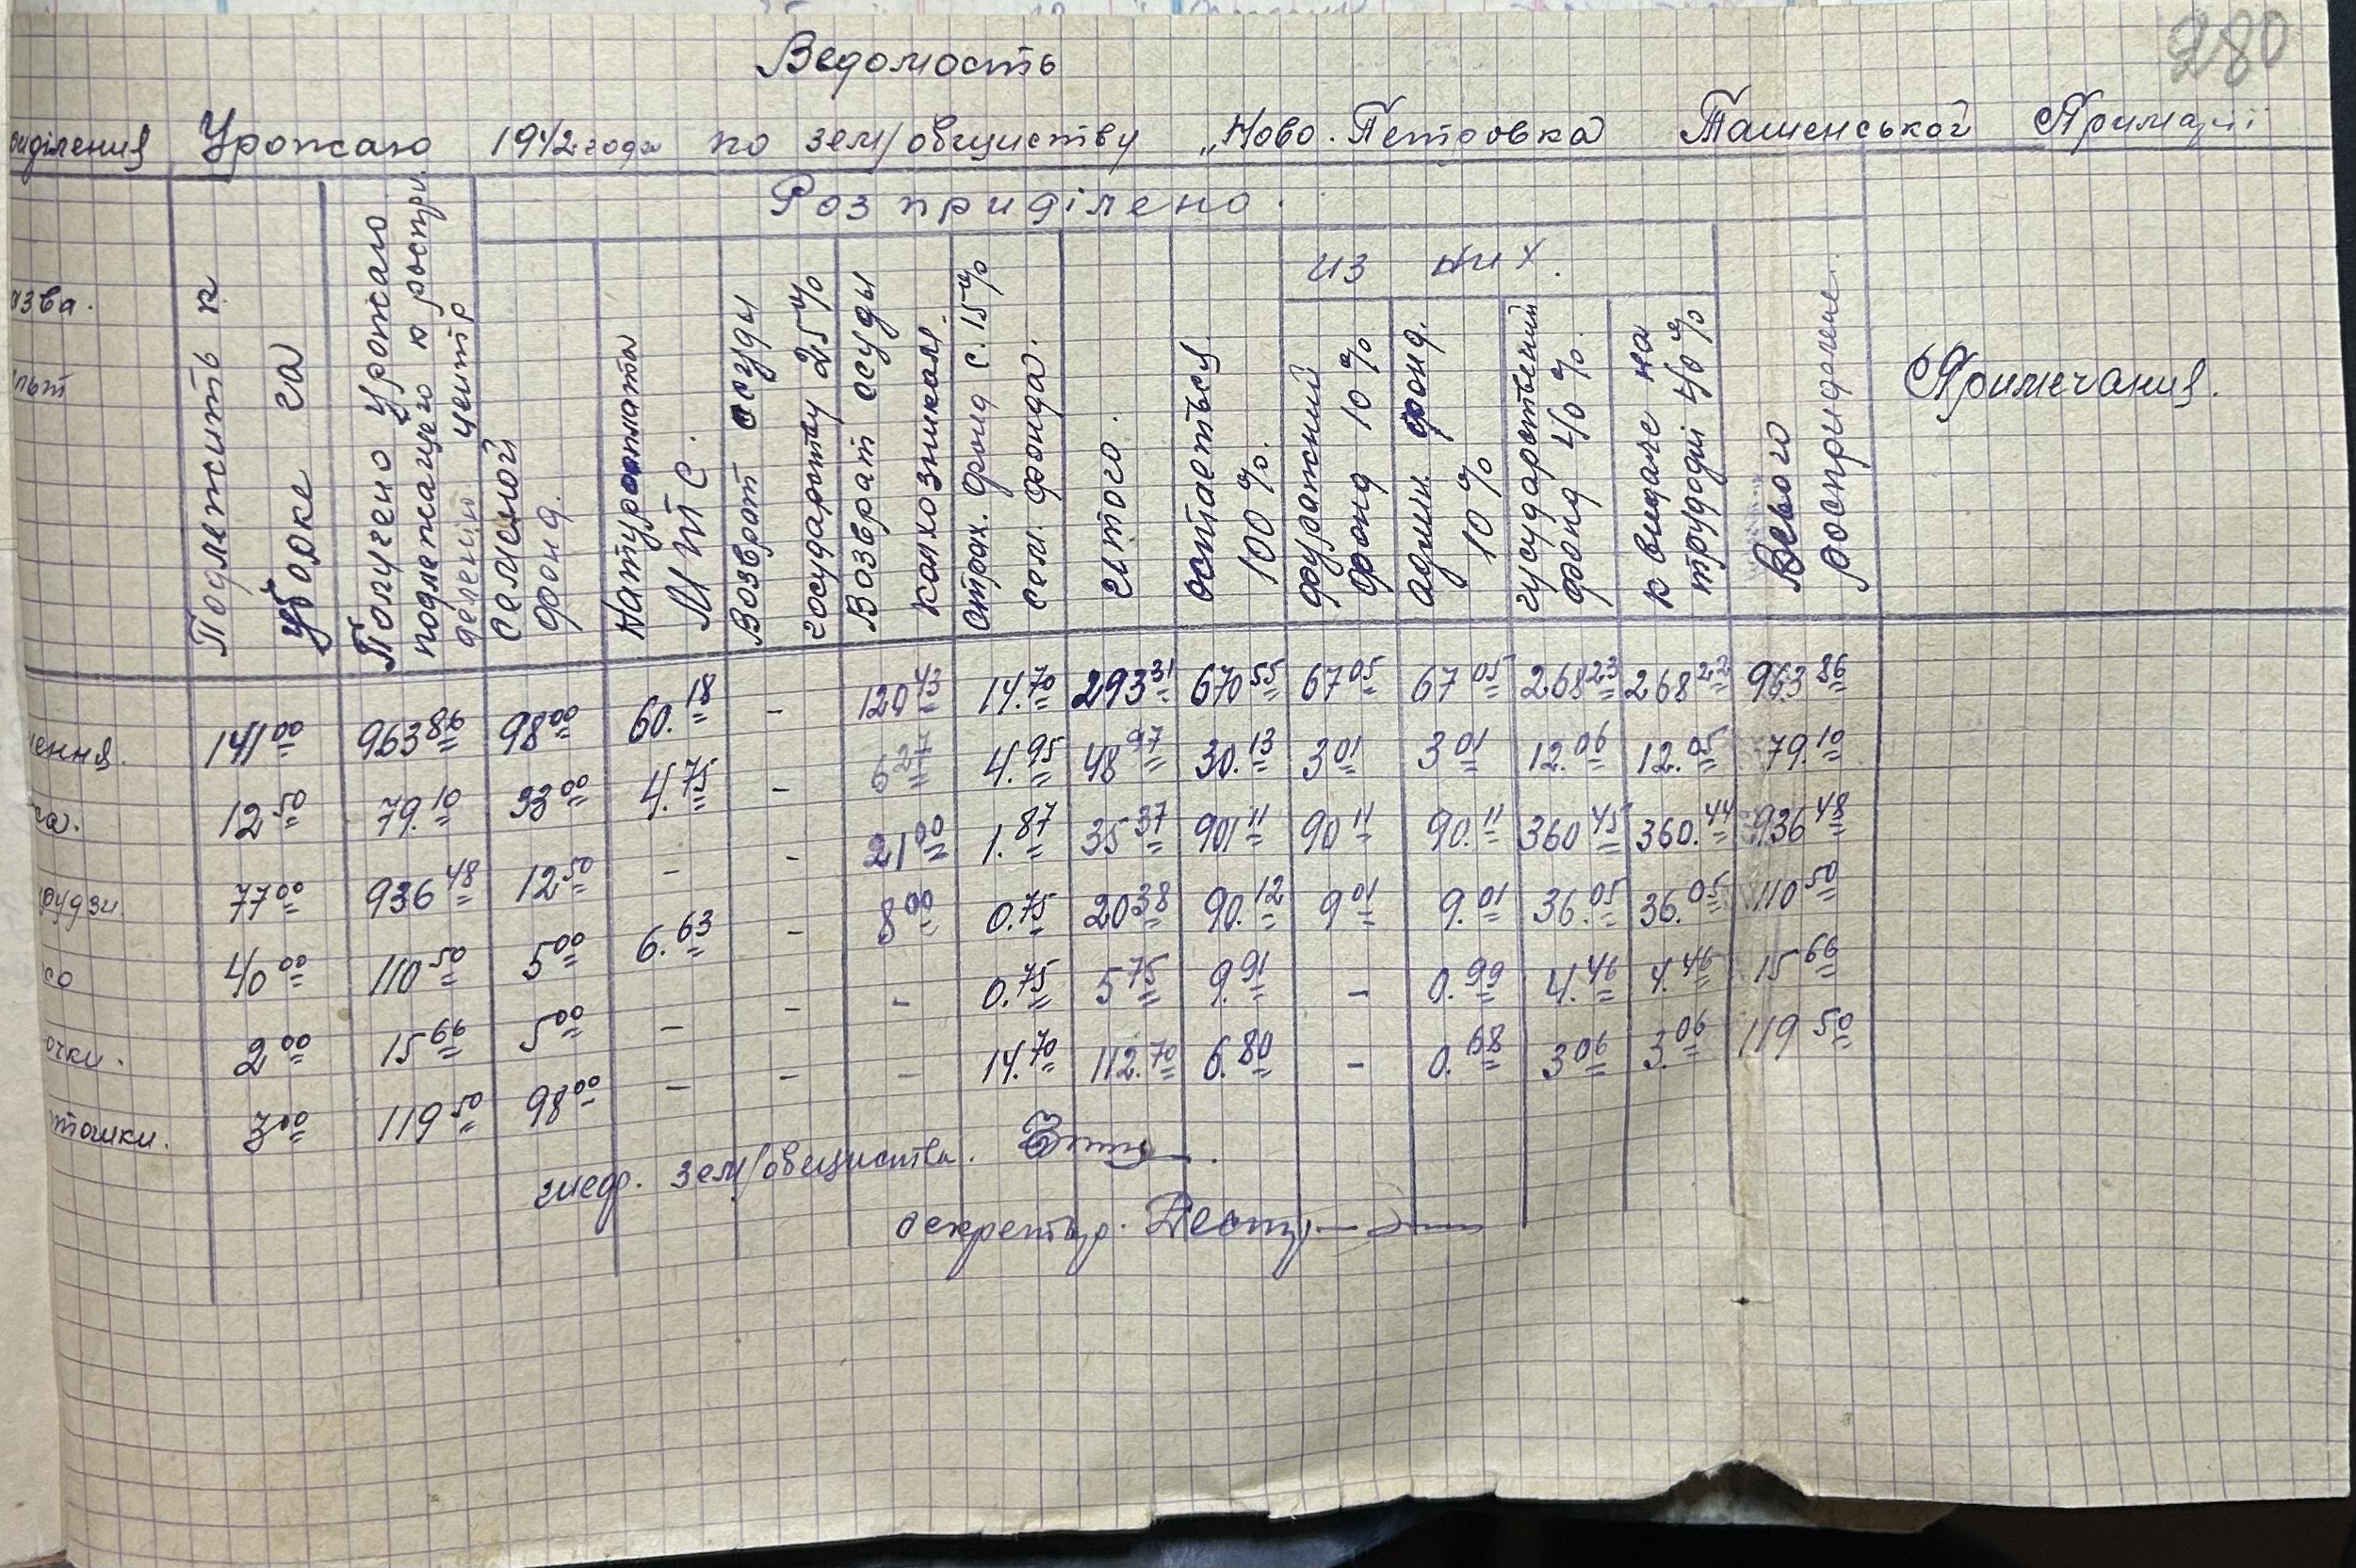 280
Ведомость
риділения Урожаю 1942 года по зем/общиству „Ново-Петровка Ташенської Примарії
азва.
льт
Подлежить к
уборке га
Получено урожаю
подлежащего к распри
деленію центр
Розприділено.
Семеной
фонд.
Натуроплата
МТС.
Возврат ссуды
государству 25%
Возврат ссуды
колхозникам.
страх. фонд с. 15%
сем. фонда.
итого.
остаеться
100%.
из них.
фуражний
фонд 10%
админ. фонд.
10%
государственій
фонд 40%.
к видаче на
трудодні 40%
Всього
росприделене.
Примечания.
чення. 141 00 963 86 98 00 60. 18 - 120 43 14. 70 293 31 670 55 67 05 67 05 268 23 268 22 963 86
са. 12 50 79. 10 33 00 4. 75 - 6 27 4. 95 48 97 30. 13 3 01 3 01 12. 06 12. 05 79. 10
рудзи 77 00 936 48 12 50 - - 21 00 1. 87 35 37 901 11 90 11 90. 11 360 45 360. 44 936 48
со 40 00 110 50 5 00 6. 63 - 8 00 0. 75 20 38 90. 12 9 01 9. 01 36. 05 36. 05 110 50
очки. 2 00 15 66 5 00 - - - 0. 75 5 75 9. 91 - 0. 99 4. 46 4. 46 15 66
тошки. 3 00 119 50 98 00 - - - 14. 70 112. 70 6. 80 - 0. 68 3 06 3. 06 119 50
зем/общиства.
секретар.